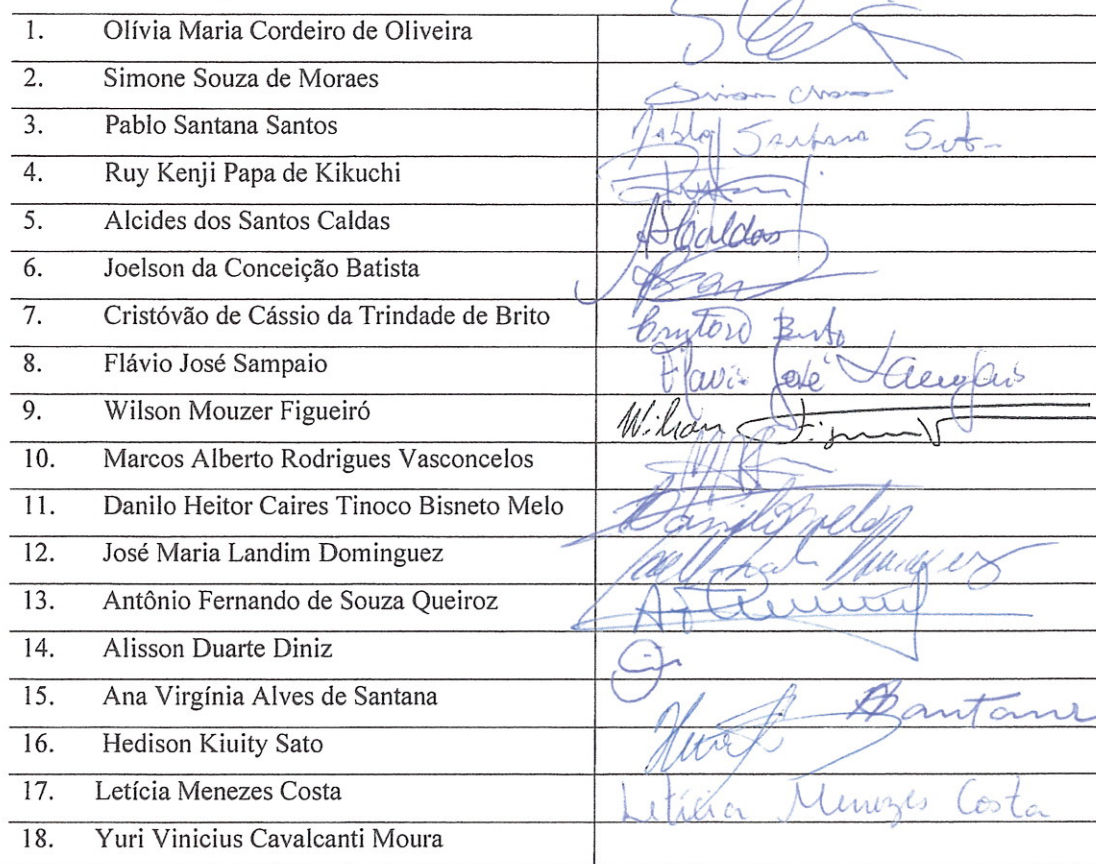 1. Olívia Maria Cordeiro de Oliveira
2. Simone Souza de Moraes
3. Pablo Santana Santos Pablo Santana
4. Ruy Kenji Papa de Kikuchi
5. Alcides dos Santos Caldas ASCaldas
6. Joelson da Conceição Batista
7. Cristóvão de Cássio da Trindade de Brito Brito
8. Flávio José Sampaio Flavio José
9. Wilson Mouzer Figueiró Wilson
10. Marcos Alberto Rodrigues Vasconcelos
11. Danilo Heitor Caires Tinoco Bisneto Melo Danilo Melo
12. José Maria Landim Dominguez
13. Antônio Fernando de Souza Queiroz
14. Alisson Duarte Diniz
15. Ana Virgínia Alves de Santana Santana
16. Hedison Kiuity Sato
17. Letícia Menezes Costa Letícia Menezes Costa
18. Yuri Vinicius Cavalcanti Moura